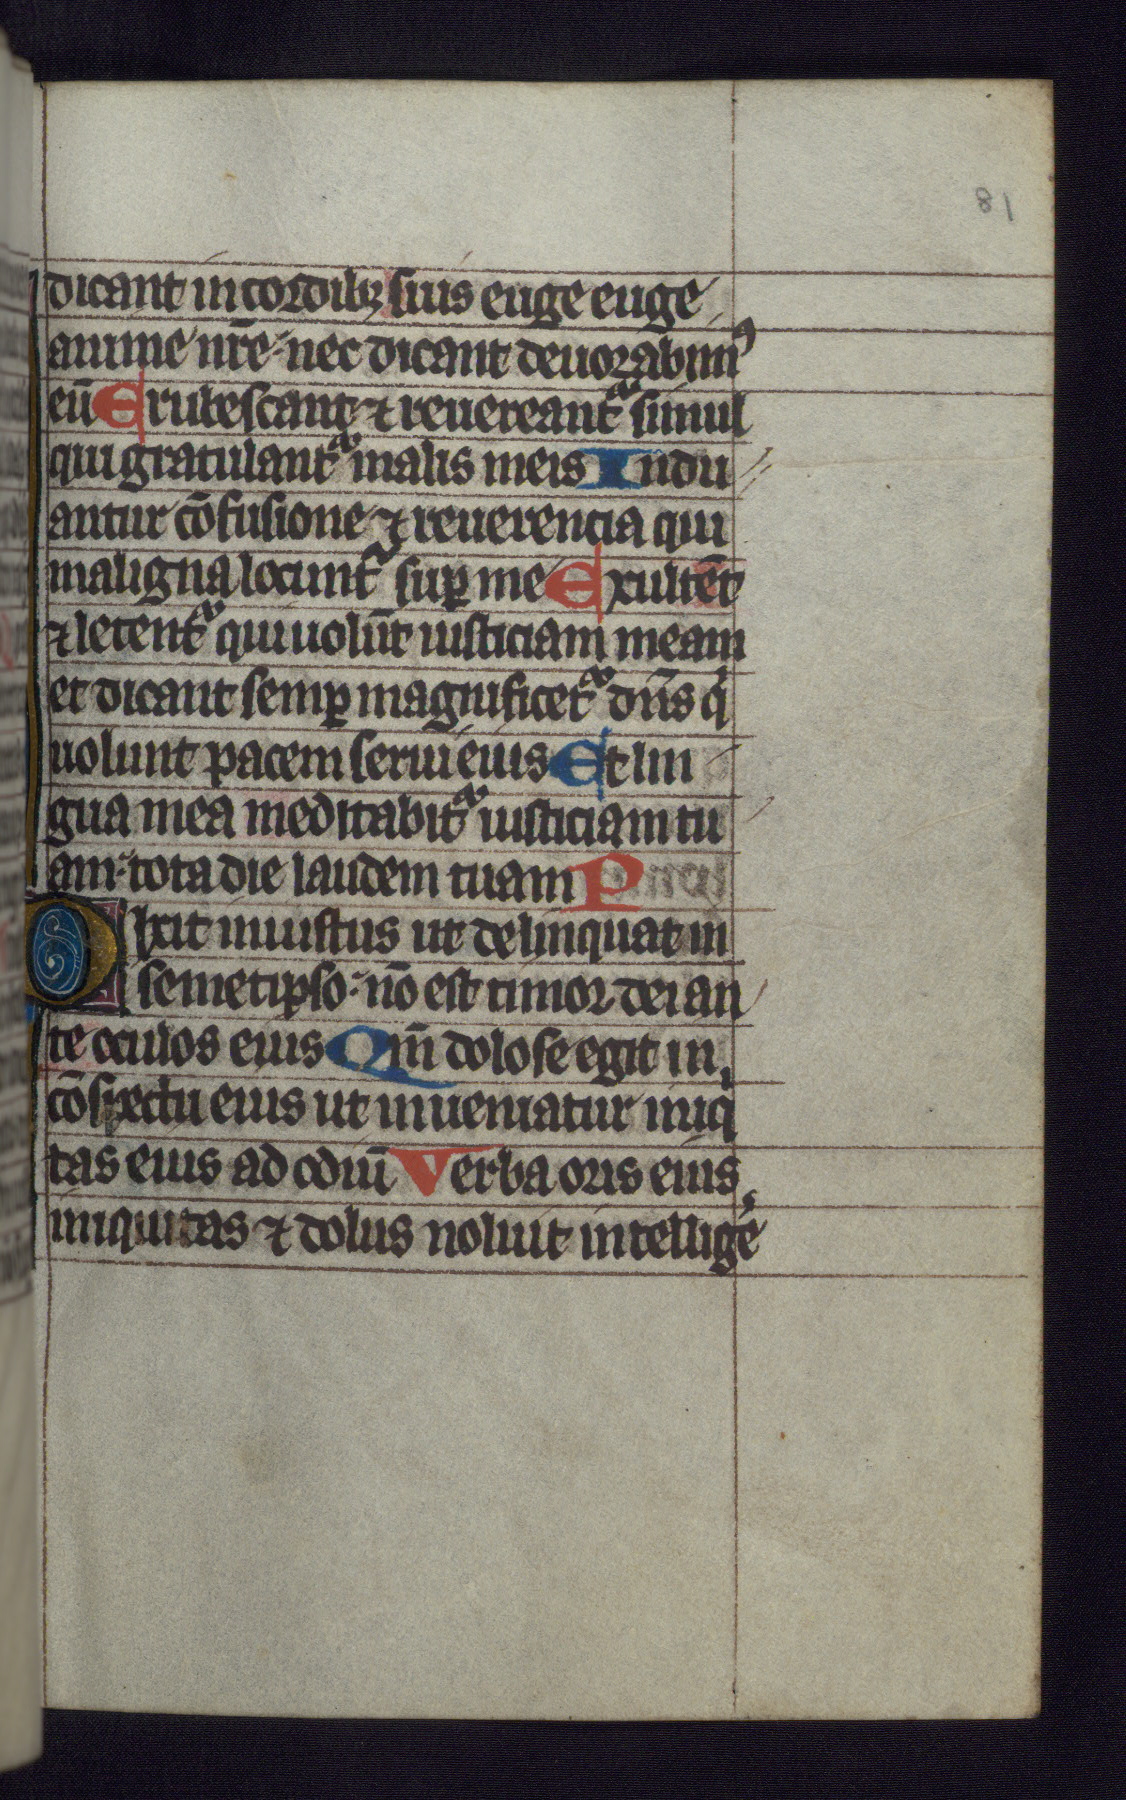 81
dicant in cordibꝫ suis euge euge
anime nr̄e nec dicant deuorabimꝰ
eū Erubescant ⁊ reuereantᷓ simul
qui gratulantᷓ malis meis Indu
antur cōfusione ⁊ reuerencia qui
maligna locuntᷓ suꝑ me Exultēt
⁊ letentᷓ qui uolūt iusticiam meam
et dicant semꝑ magnificetᷓ dn̄s qͥ
uolunt pacem serui eius Et lin
gua mea meditabitᷓ iusticiam tu
am tota die laudem tuam P
Dixit iniustus ut delinquat in
semetipso nō est timor dei an
te oculos eius Qm̄ dolose egit in
cōspectu eius ut inueniatur iniqͥ
tas eius ad odiū Verba oris eius
iniquitas ⁊ dolus noluit intelligē